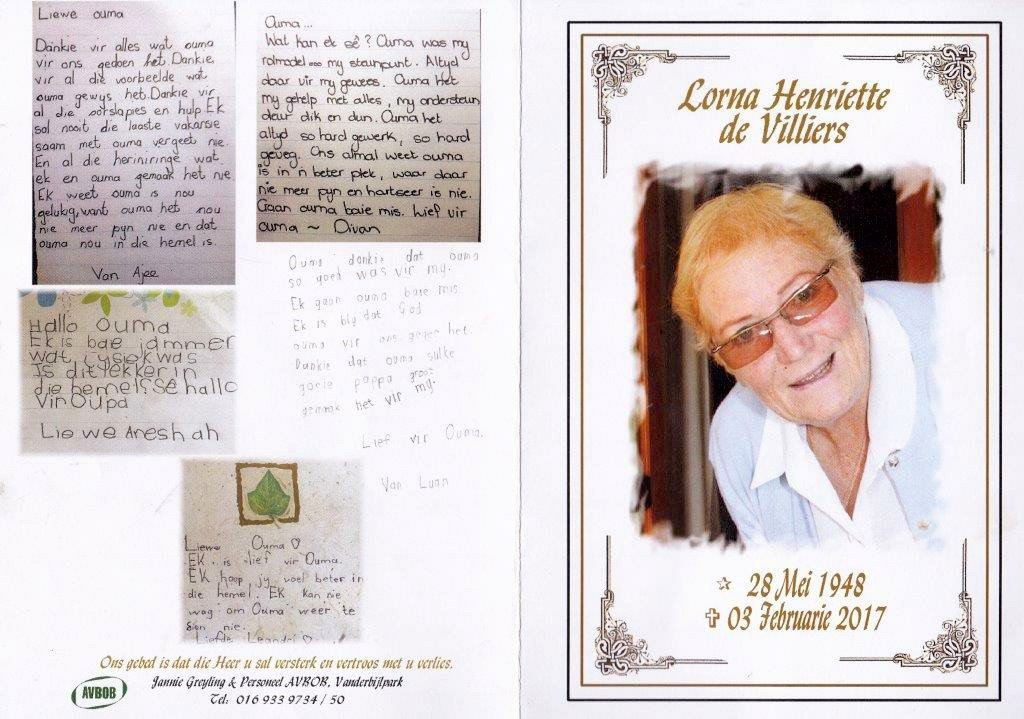 Liewe ouma
Dankie vir alles wat ouma
vir ons gedoen het. Dankie
vir al die voorbeelde wat
ouma gewys het. Dankie vir
al die oorslapies en hulp. Ek
sal nooit die laaste vakansie
saam met ouma vergeet nie.
En al die heriniringe wat
ek en ouma gemaak het nie
Ek weet ouma is nou
gelukig, want ouma het nou
nie meer pyn nie en dat
ouma nou in die hemel is.
Van Ajee
Ouma...
Wat kan ek sê? Ouma was my
rolmodel ... my steunpunt. Altyd
daar vir my gewees. Ouma het
my gehelp met alles, my ondersteun
deur dik en dun. Ouma het
altyd so hard gewerk, so hard
geveg. Ons almal weet ouma
is in 'n beter plek, waar daar
nie meer pyn en hartseer is nie.
Gaan ouma baie mis. Lief vir
ouma ~ Divan
Hallo ouma
Ek is bae jammer
wat jy siek was
Is dit lekker in
die hemel? Sê hallo
Vir Oupa
Liewe Aneshah
Ouma dankie dat ouma
so goed was vir my.
Ek gaan ouma baie mis.
Ek is bly dat God
ouma vir ons gegee het.
Dankie dat ouma sulke
goeie pappa groot
gemaak het vir my.
Lief vir Ouma.
Van Luan
Liewe Ouma ♡
EK is lief vir Ouma.
EK hoop jy voel beter in
die hemel. EK kan nie
wag om Ouma weer te
sien nie.
Liefde Leandri ♡
Ons gebed is dat die Heer u sal versterk en vertroos met u verlies.
AVBOB
Jannie Greyling & Personeel AVBOB, Vanderbijlpark
Tel: 016 933 9734 / 50
Lorna Henriette
de Villiers
☆ 28 Mei 1948
✝ 03 Februarie 2017